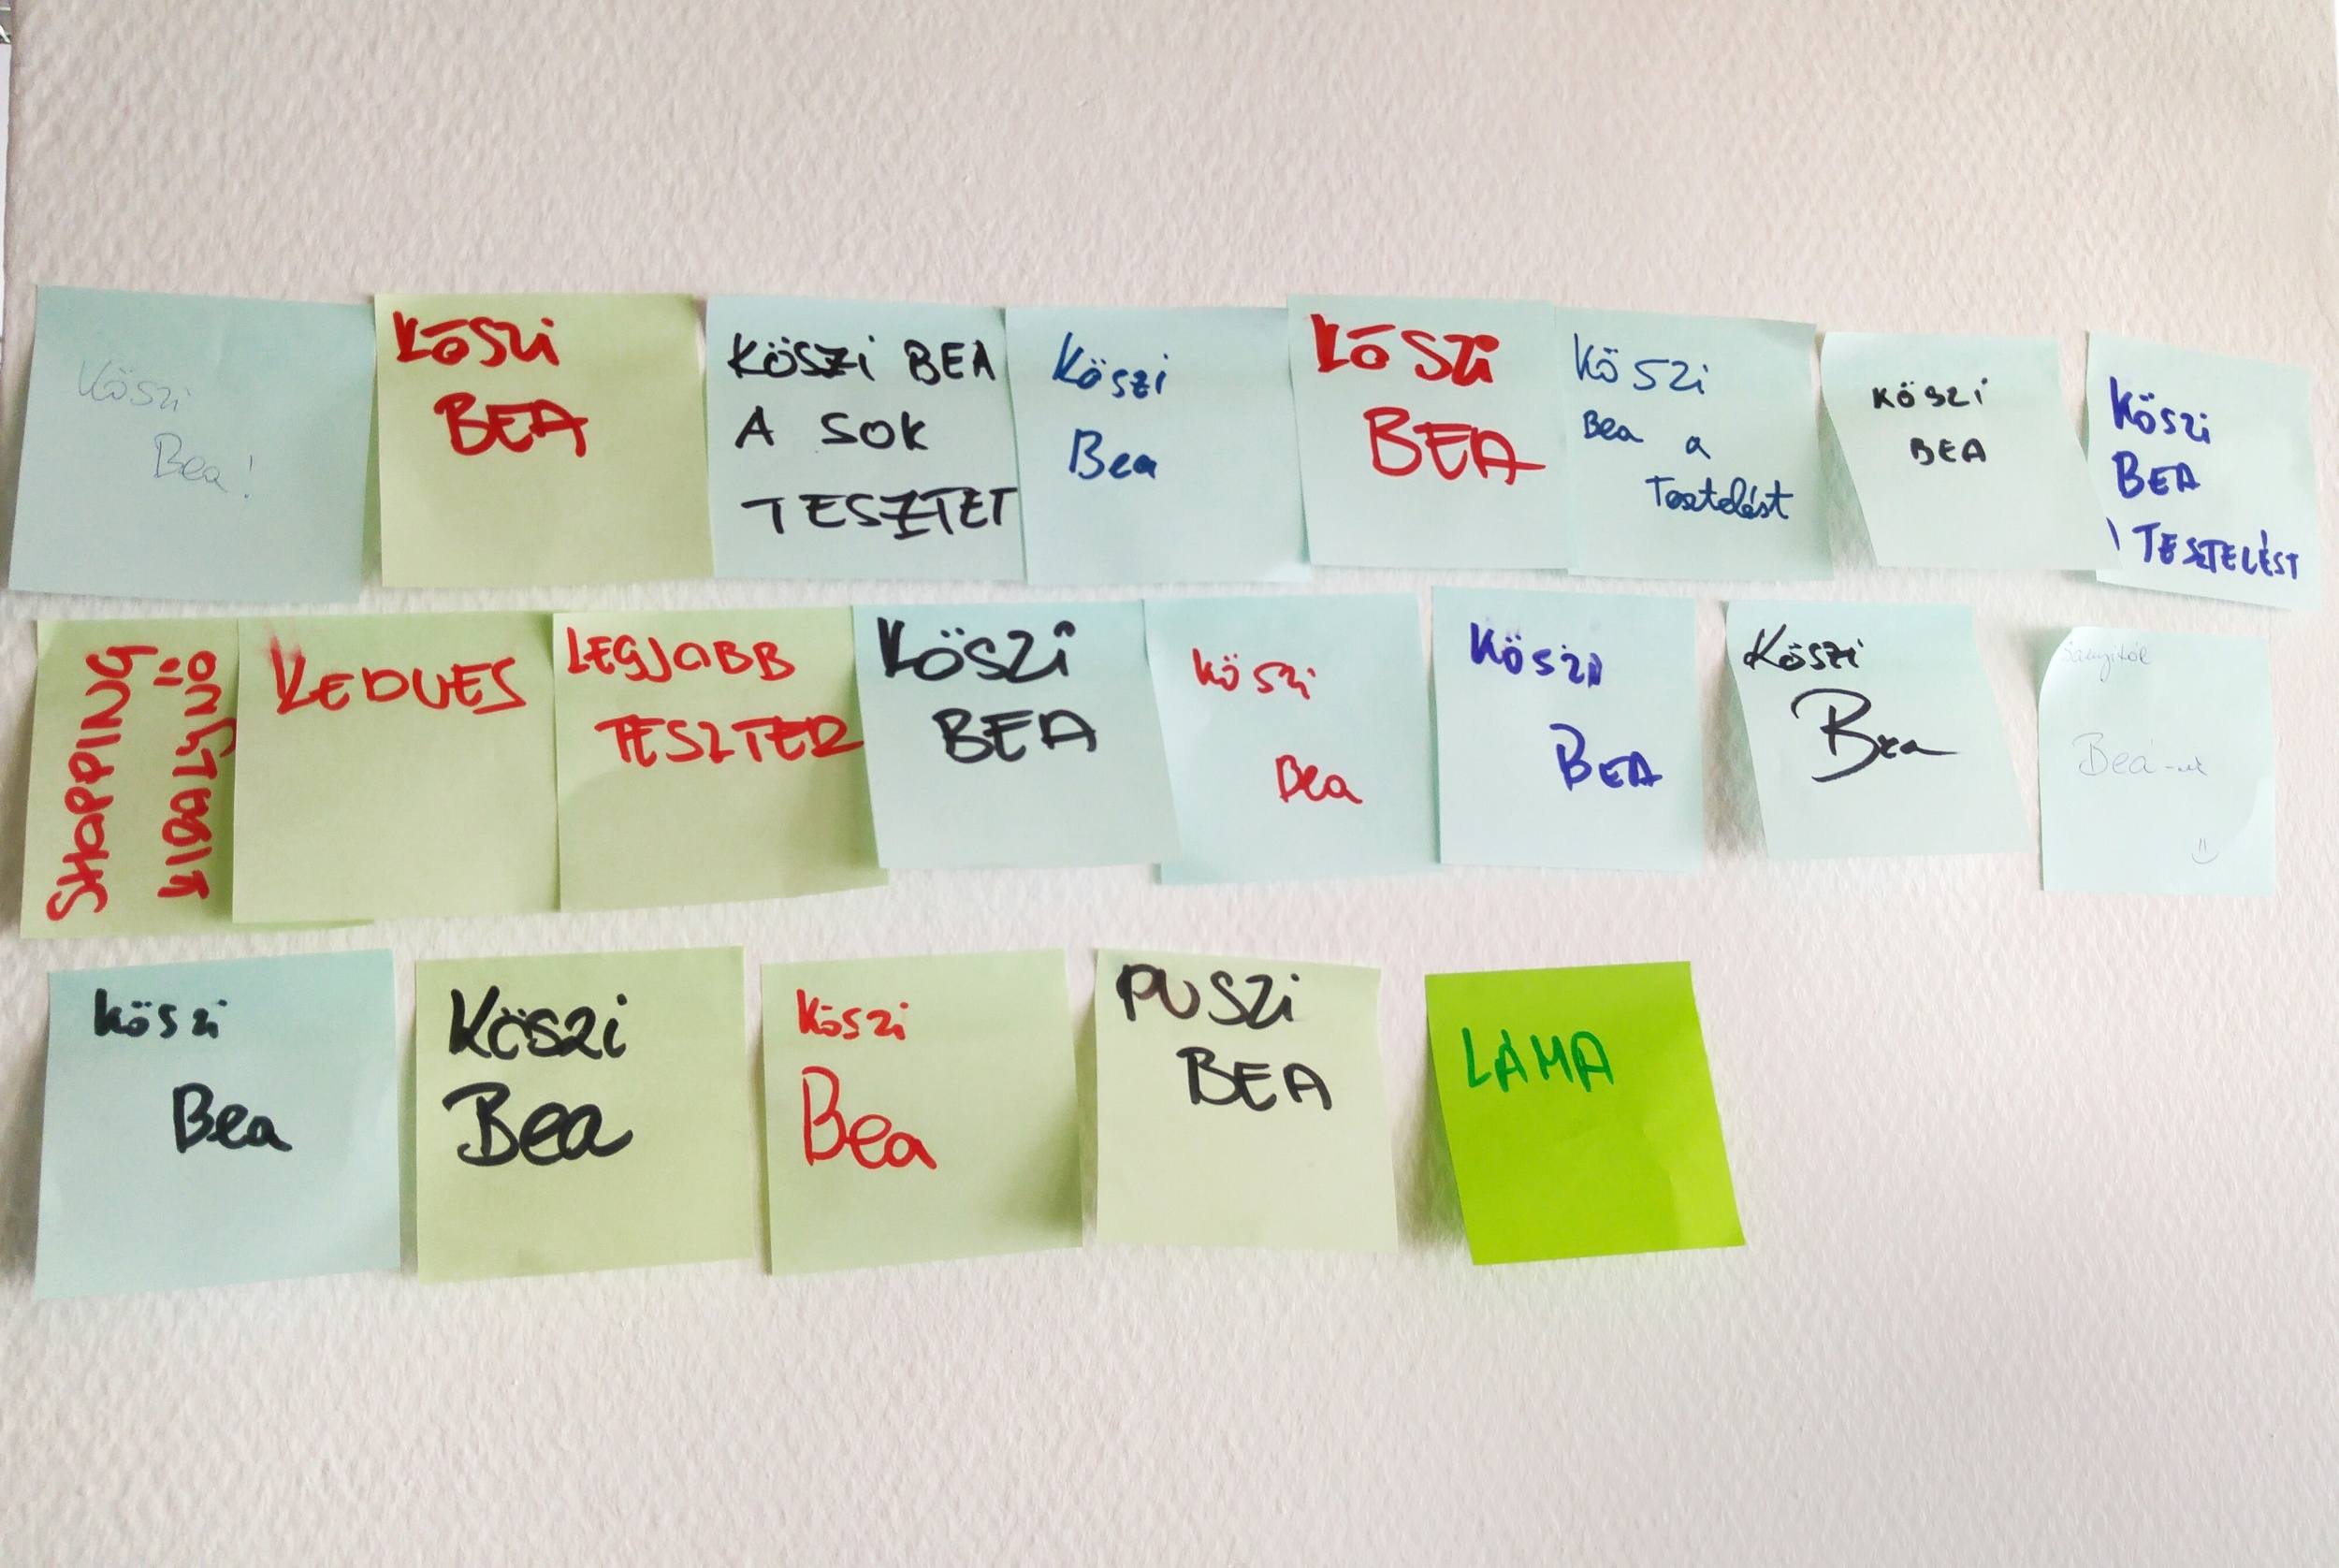 Köszi
Bea!
Köszi
BEA
KÖSZi BEA
A SOK
TESZTET
Köszi
Bea
KöSZi
BEA
Köszi
Bea a
Tesztelést
KöSZi
BEA
Köszi
BEA
TESZTELÉST
SHOPPING
KIRÁLYNŐ
KEDVES
LEGJOBB
TESZTER
KÖSZi
BEA
Köszi
Bea
Köszi
BEA
Köszi
Bea
Sanyitól
Beá-nak
köszi
Bea
Köszi
Bea
Köszi
Bea
PUSZi
BEA
LÁMA